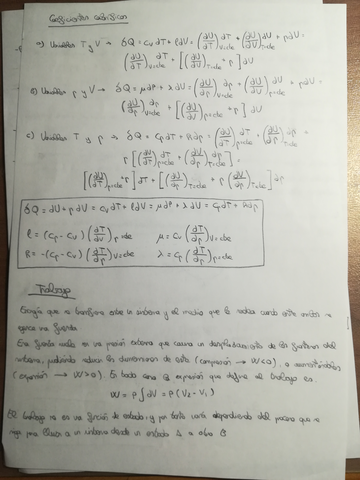 Coeficientes caloríficos
a) Variables T y V → δQ = CvdT + ldV = (dU/dT)V=cte dT + (dU/dV)T=cte dV + pdV =
(dU/dT)V=cte dT + [(dU/dV)T=cte + p] dV
b) Variables p y V → δQ = μdp + λdV = (dU/dp)V=cte dp + (dU/dV)p=cte dV + pdV =
(dU/dp)V=cte dp + [(dU/dV)p=cte + p] dV
c) Variables T y p → δQ = CpdT + hdp = (dU/dT)p=cte dT + (dU/dp)T=cte dp +
p [(dV/dT)p=cte dT + (dV/dp)T=cte dp] =
[(dU/dT)p=cte + p (dV/dT)p=cte] dT + [(dU/dp)T=cte + p (dV/dp)T=cte] dp
δQ = dU + pdV = CvdT + ldV = μdp + λdV = CpdT + hdp
l = (Cp - Cv) (dT/dV)p=cte μ = Cv (dT/dp)V=cte
h = -(Cp - Cv) (dT/dp)V=cte λ = Cp (dT/dV)p=cte
Trabajo
Energía que se transfiere entre un sistema y el medio que le rodea cuando entre ambos se
ejerce una fuerza.
Esa fuerza suele ser una presión externa que causa un desplazamiento de las fronteras del
sistema, pudiendo reducir las dimensiones de este (compresión → W<0), o aumentándolas
(expansión → W>0). En todo caso la expresión que define el trabajo es:
W = P ∫dV = P (V2 - V1)
El trabajo no es una función de estado y por tanto varía dependiendo del proceso que se
siga para llevar a un sistema desde un estado A a otro B